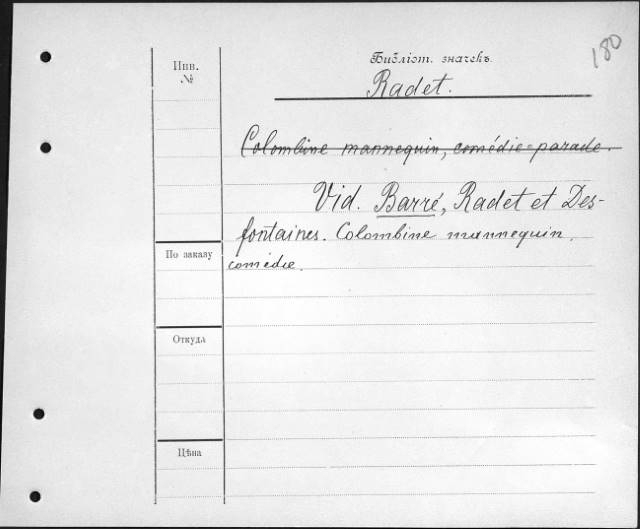 180
Библіот. значекъ.
Инв.
№
Radet.
Colombine mannequin, comédie-parade.
Vid. Barré, Radet et Des-
fontaines. Colombine mannequin,
comédie.
По заказу
Откуда
Цѣна